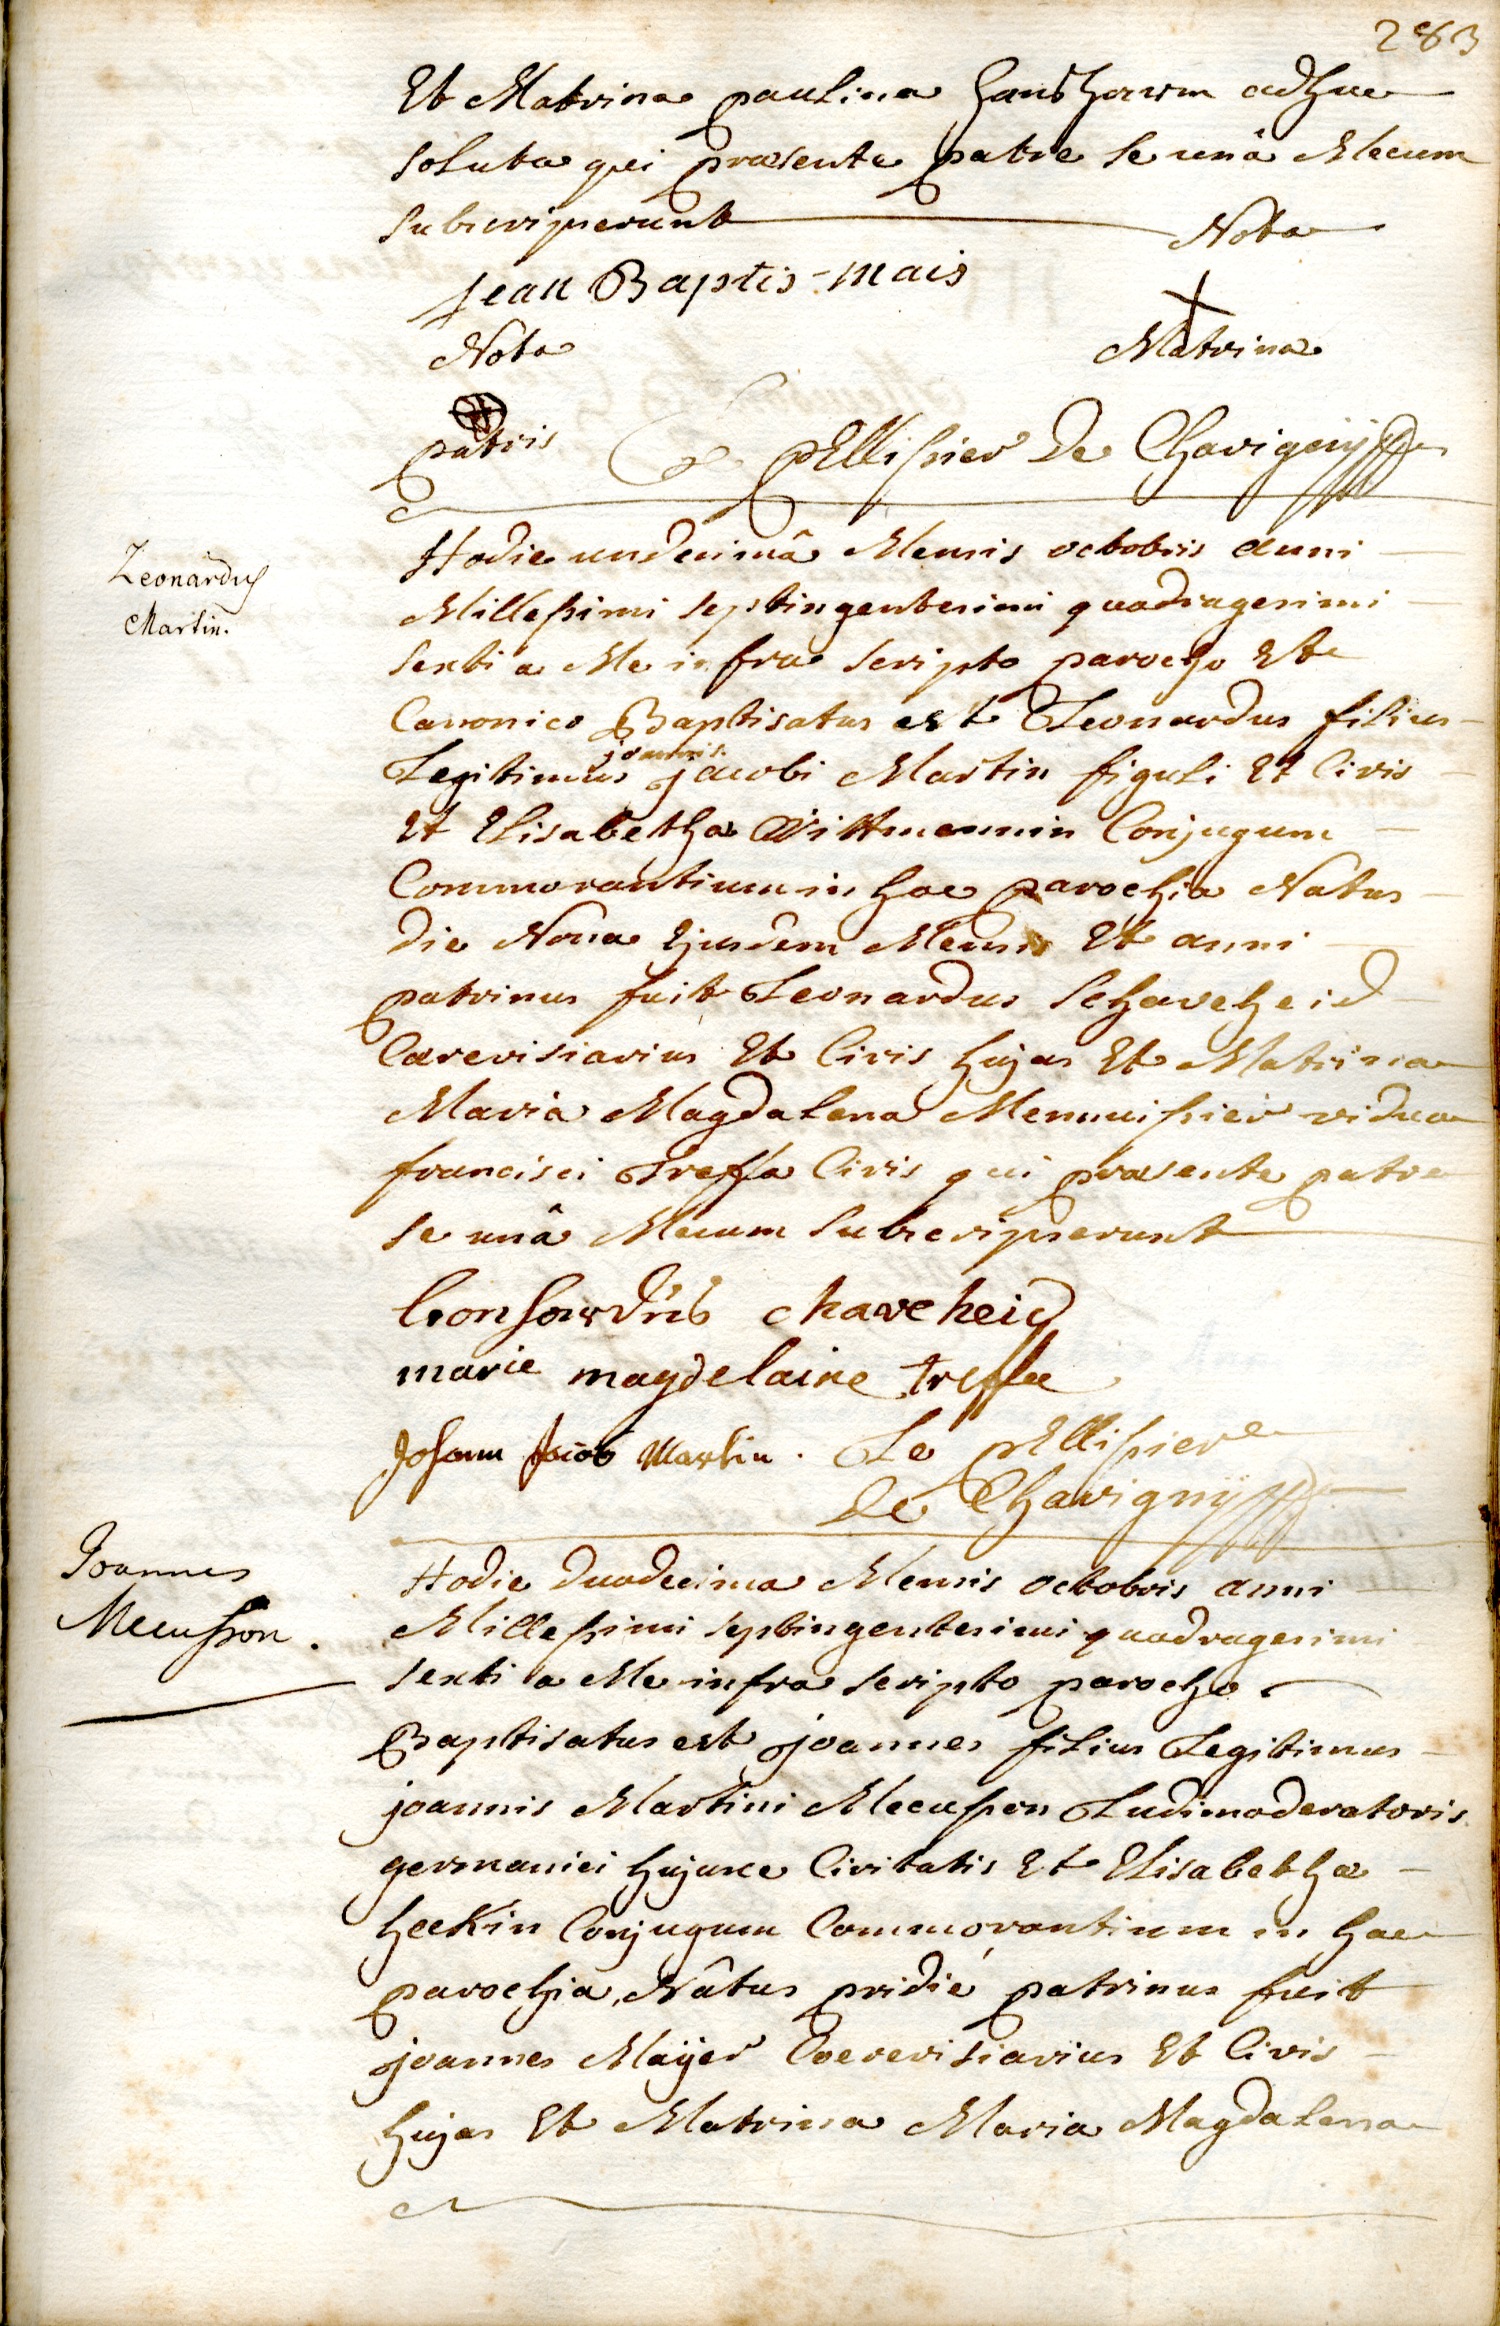 283
Et Matrina paulina adhuc
soluta qui præsente patre se unâ Mecum
subscripserunt Nota
jean Baptis-mais
Nota Matrina
patris Le pEllissier De Chavigny
Leonardus
Martin.
Hodie undecimâ Mensis octobris anni
Millessimi septingentesimi quadragesimi
sexti a Me infra scripto parocho Et
Canonico Baptisatus est Leonardus filius
joannis
Legitimus jacobi Martin figuli Et Civis
Et Elisabetha Wittmennin Conjugum
Commorantium in hac parochia Natus
die Nona Ejusdem Mensis Et anni
patrinus fuit Leonardus Schaveheid
Cærevisiarius Et Civis hujas Et Matrina
Maria Magdalena Mennuissier vidua
francisci Treffa Civis qui præsente patre
se unâ Mecum subscripserunt
chaveheid
marie magdelaine treffle
Johann Jacob Martin. Le pEllissier
De Chavigny
Joannes
Mecusson.
Hodie duodecima Mensis octobris anni
Millessimi septingentesimi quadragesimi
sexti a Me infra scripto parocho
Baptisatus est joannes filius Legitimus
joannis Martini Mecusson Ludimoderatoris
germanici hujusce Civitatis Et Elisabetha
heckin Conjugum Commorantium in hac
parochia, Nâtus pridie patrinus fuit
joannes Maÿer Coerevisiarius Et Civis
hujas Et Matrina Maria Magdalena